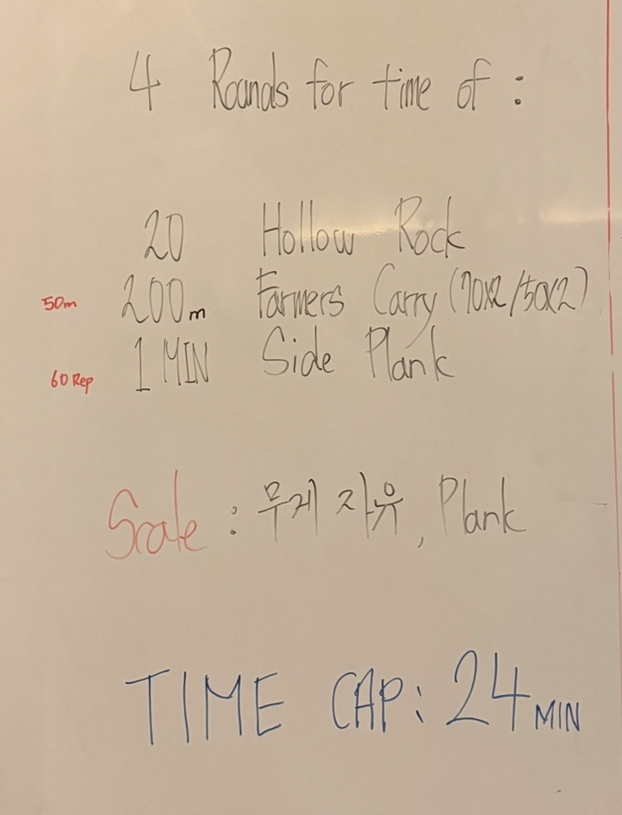 4 Rounds for time of :
20 Hollow Rock
50m 200m Farmers Carry (70x2/50x2)
60 Rep 1 MIN Side Plank
Scale : 무게 자유, Plank
TIME CAP: 24 MIN